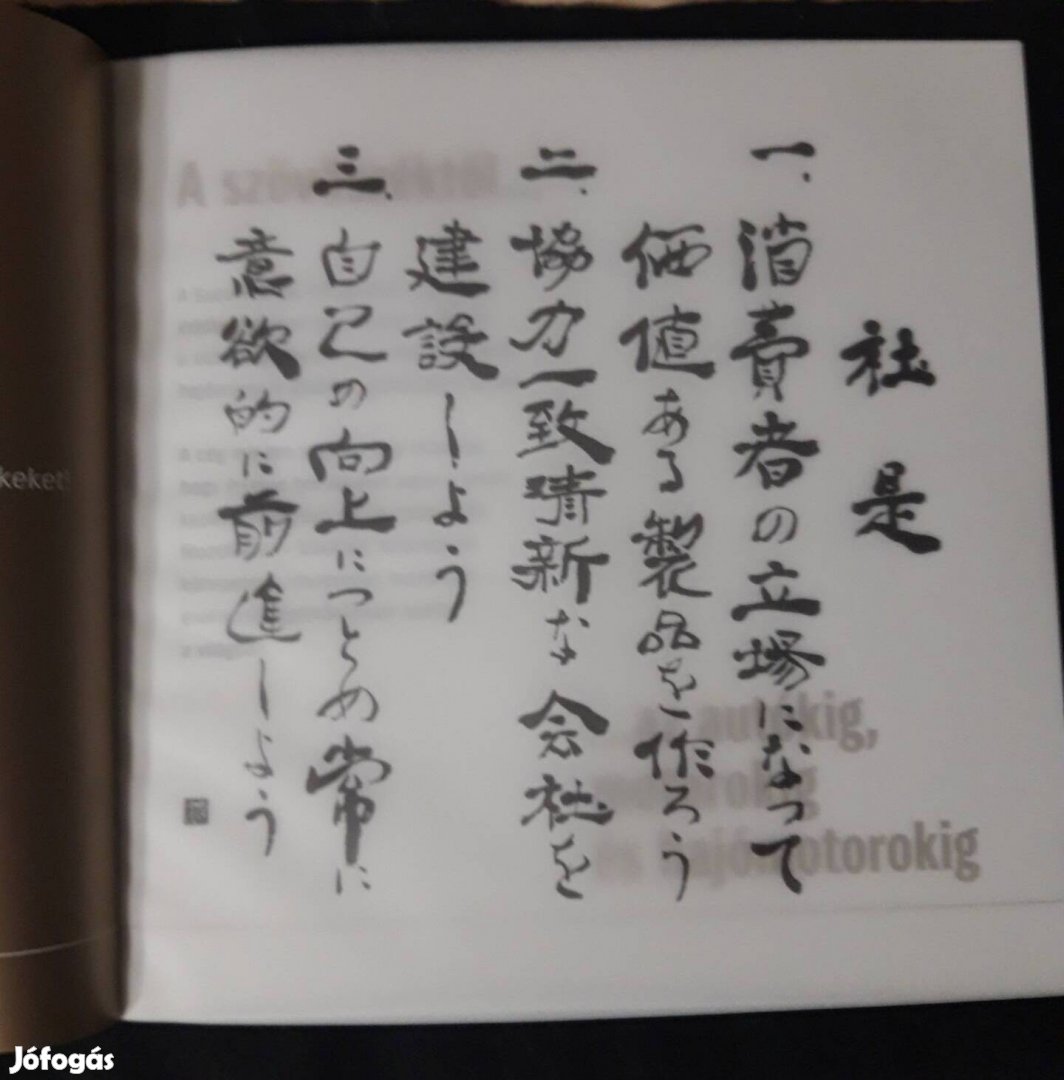 社是
一、消費者の立場になって
価値ある製品を作ろう
二、協力一致清新な会社を
建設しよう
三、自己の向上につとめ常に
意欲的に前進しよう
A
autókig,
és hajómotorokig
keket
Jófogás